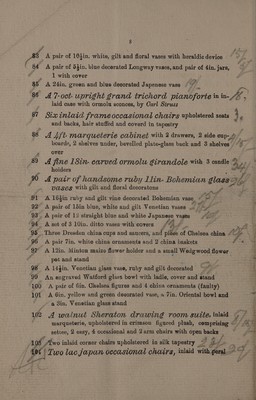 8
83 A pair of 10½in. white, gilt and floral vases with heraldic device
84 A pair of 8½in. blue decorated Longway vases, and pair of 4in. jars,
1 with cover
85 A 24in. green and blue decorated Japanese vase
86 A 7-oct. upright grand trichord pianoforte in in-
laid case with ormolu sconces, by Carl Struss
87 Six inlaid frame occasional chairs upholstered seats
and backs, hair stuffed and covered in tapestry
88 A 4ft. marqueterie cabinet with 2 drawers, 2 side cup-
boards, 2 shelves under, bevelled plate-glass back and 3 shelves
over
89 A fine 18in. carved ormolu girandole with 3 candle
holders
90 A pair of handsome ruby 11in. Bohemian glass
vases with gilt and floral decorations
91 A 16½in ruby and gilt rice decorated Bohemian vase
92 A pair of 15in blue, white and gilt Venetian vases
93 A pair of 15 straight blue and white Japanese vases
94 A set of 3 10in. ditto vases with covers
95 Three Dresden china cups and saucers, and piece of Chelsea china
96 A pair 7in. white china ornaments and 2 china baskets
97 A 12in. Minton maiden flower holder and a small Wedgwood flower
pot and stand
98 A 18½in. Venetian glass vase, ruby and gilt decorated
99 An engraved Watford glass bowl with balls, cover and stand
100 A pair of 6in. Chelsea figures and 4 china ornaments (faulty)
101 A 6in. yellow and green decorated vase, a 7in. Oriental bowl and
a 9in. Venetian glass stand
102 A walnut Sheraton drawing room suite, inlaid
marqueterie, upholstered in crimson figured plush, comprising
settee, 2 easy, 4 occasional and 2 arm chairs with open backs
103 Two inlaid corner chairs upholstered in silk tapestry
104 Two lac japan occasional chairs, inlaid with pearl